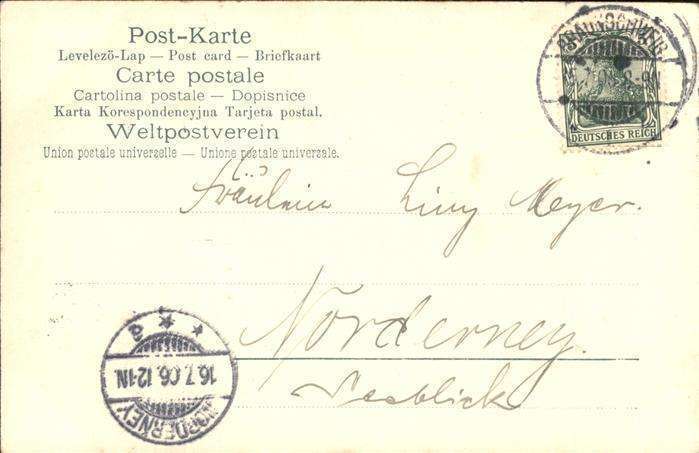 Post-Karte
Levelező-Lap — Post card — Briefkaart
Carte postale
Cartolina postale — Dopisnice
Karta Korespondencyjna Tarjeta postal.
Weltpostverein
Union postale universelle — Unione postale universale.
BRAUNSCHWEIG
DEUTSCHES REICH
Fräulein Liny Meyer.
Norderney.
Seeblick
NORDERNEY
16.7.06.12-1N.
a